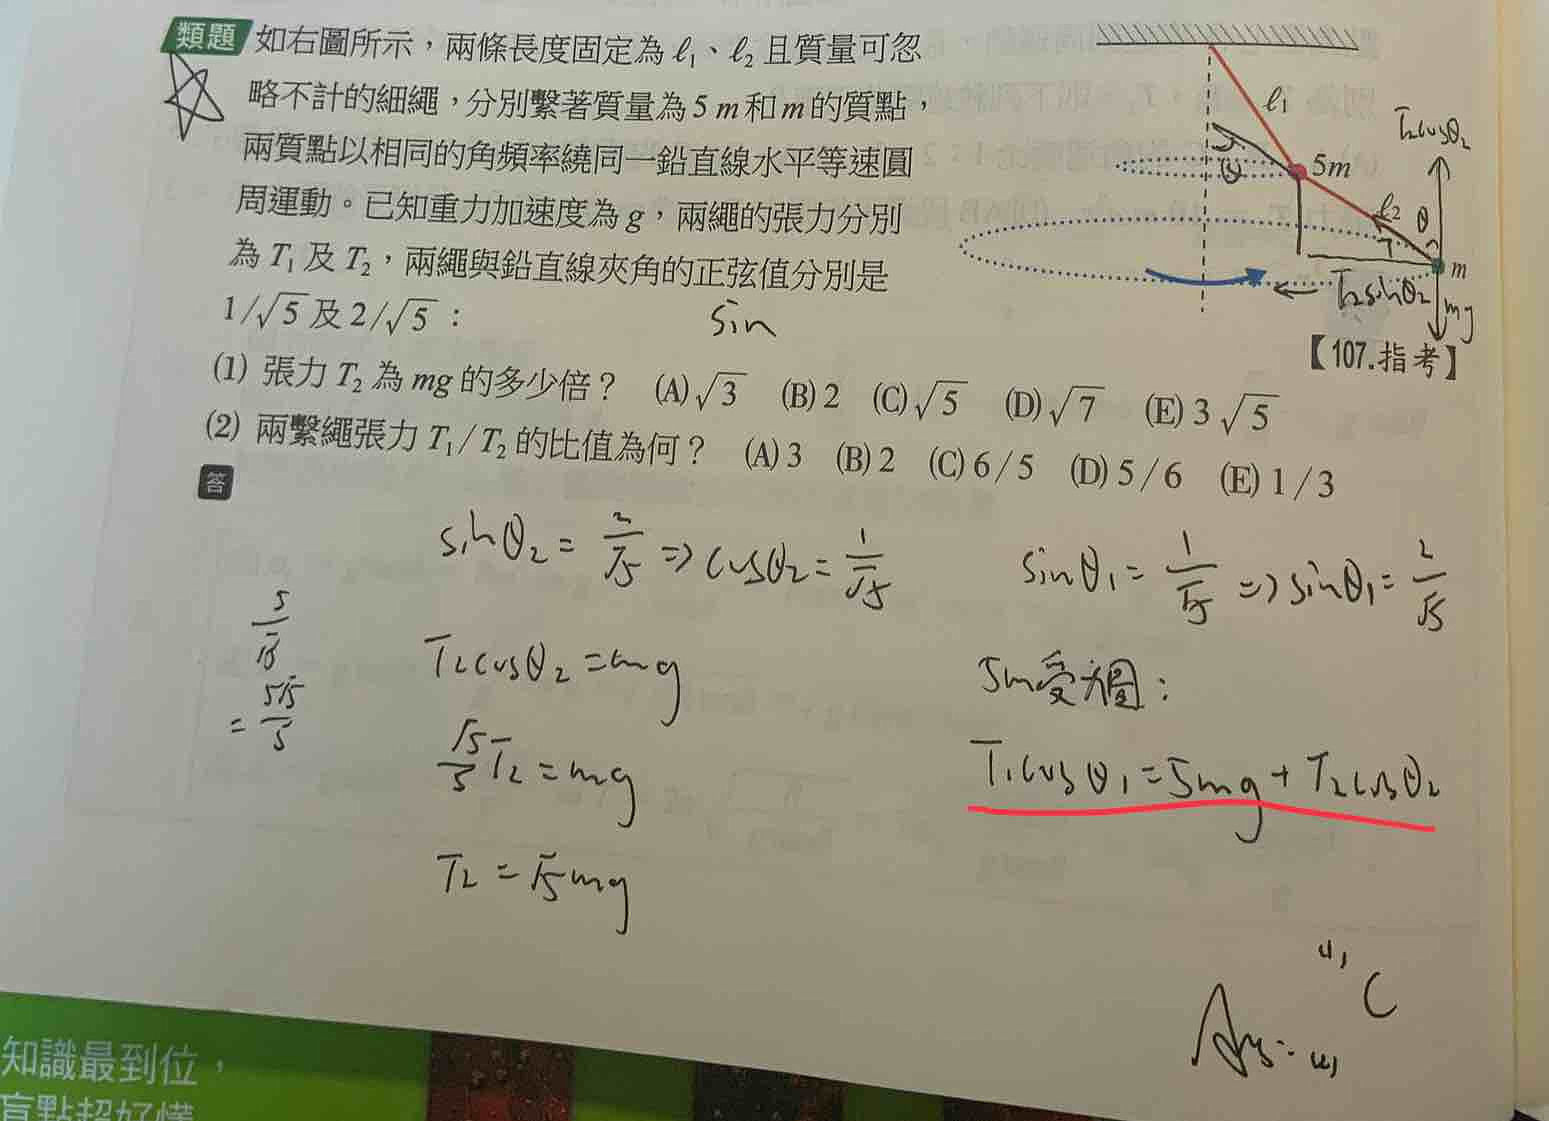 類題 如右圖所示，兩條長度固定為 ℓ₁、ℓ₂ 且質量可忽
略不計的細繩，分別繫著質量為 5 m 和 m 的質點，
兩質點以相同的角頻率繞同一鉛直線水平等速圓
周運動。已知重力加速度為 g，兩繩的張力分別
為 T₁ 及 T₂，兩繩與鉛直線夾角的正弦值分別是
1/√5 及 2/√5：
sin
ℓ₁
5m
ℓ₂
m
T₂cosθ₂
θ
T₂sinθ₂
mg
【107.指考】
(1) 張力 T₂ 為 mg 的多少倍？ (A)√3 (B) 2 (C)√5 (D)√7 (E) 3√5
(2) 兩繫繩張力 T₁/T₂ 的比值為何？ (A) 3 (B) 2 (C) 6/5 (D) 5/6 (E) 1/3
答
sinθ₂ = 2/√5 => cosθ₂ = 1/√5
T₂cosθ₂ = mg
√5/5 T₂ = mg
T₂ = √5mg
sinθ₁ = 1/√5 => sinθ₁ = 2/√5
5m受力圖：
T₁cosθ₁ = 5mg + T₂cosθ₂
(1) C
Ans:
知識最到位，
盲點超好懂